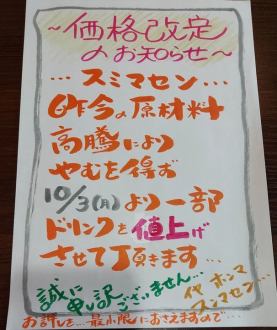 ～価格改定
のお知らせ～
…スミマセン…
昨今の原材料
高騰により
やむを得ず
10/3(月)より一部
ドリンクを値上げ
させて頂きます…
誠に
申し訳ございません…
イヤ ホンマ
スンマセン…
お許しを…最小限におさえますので…